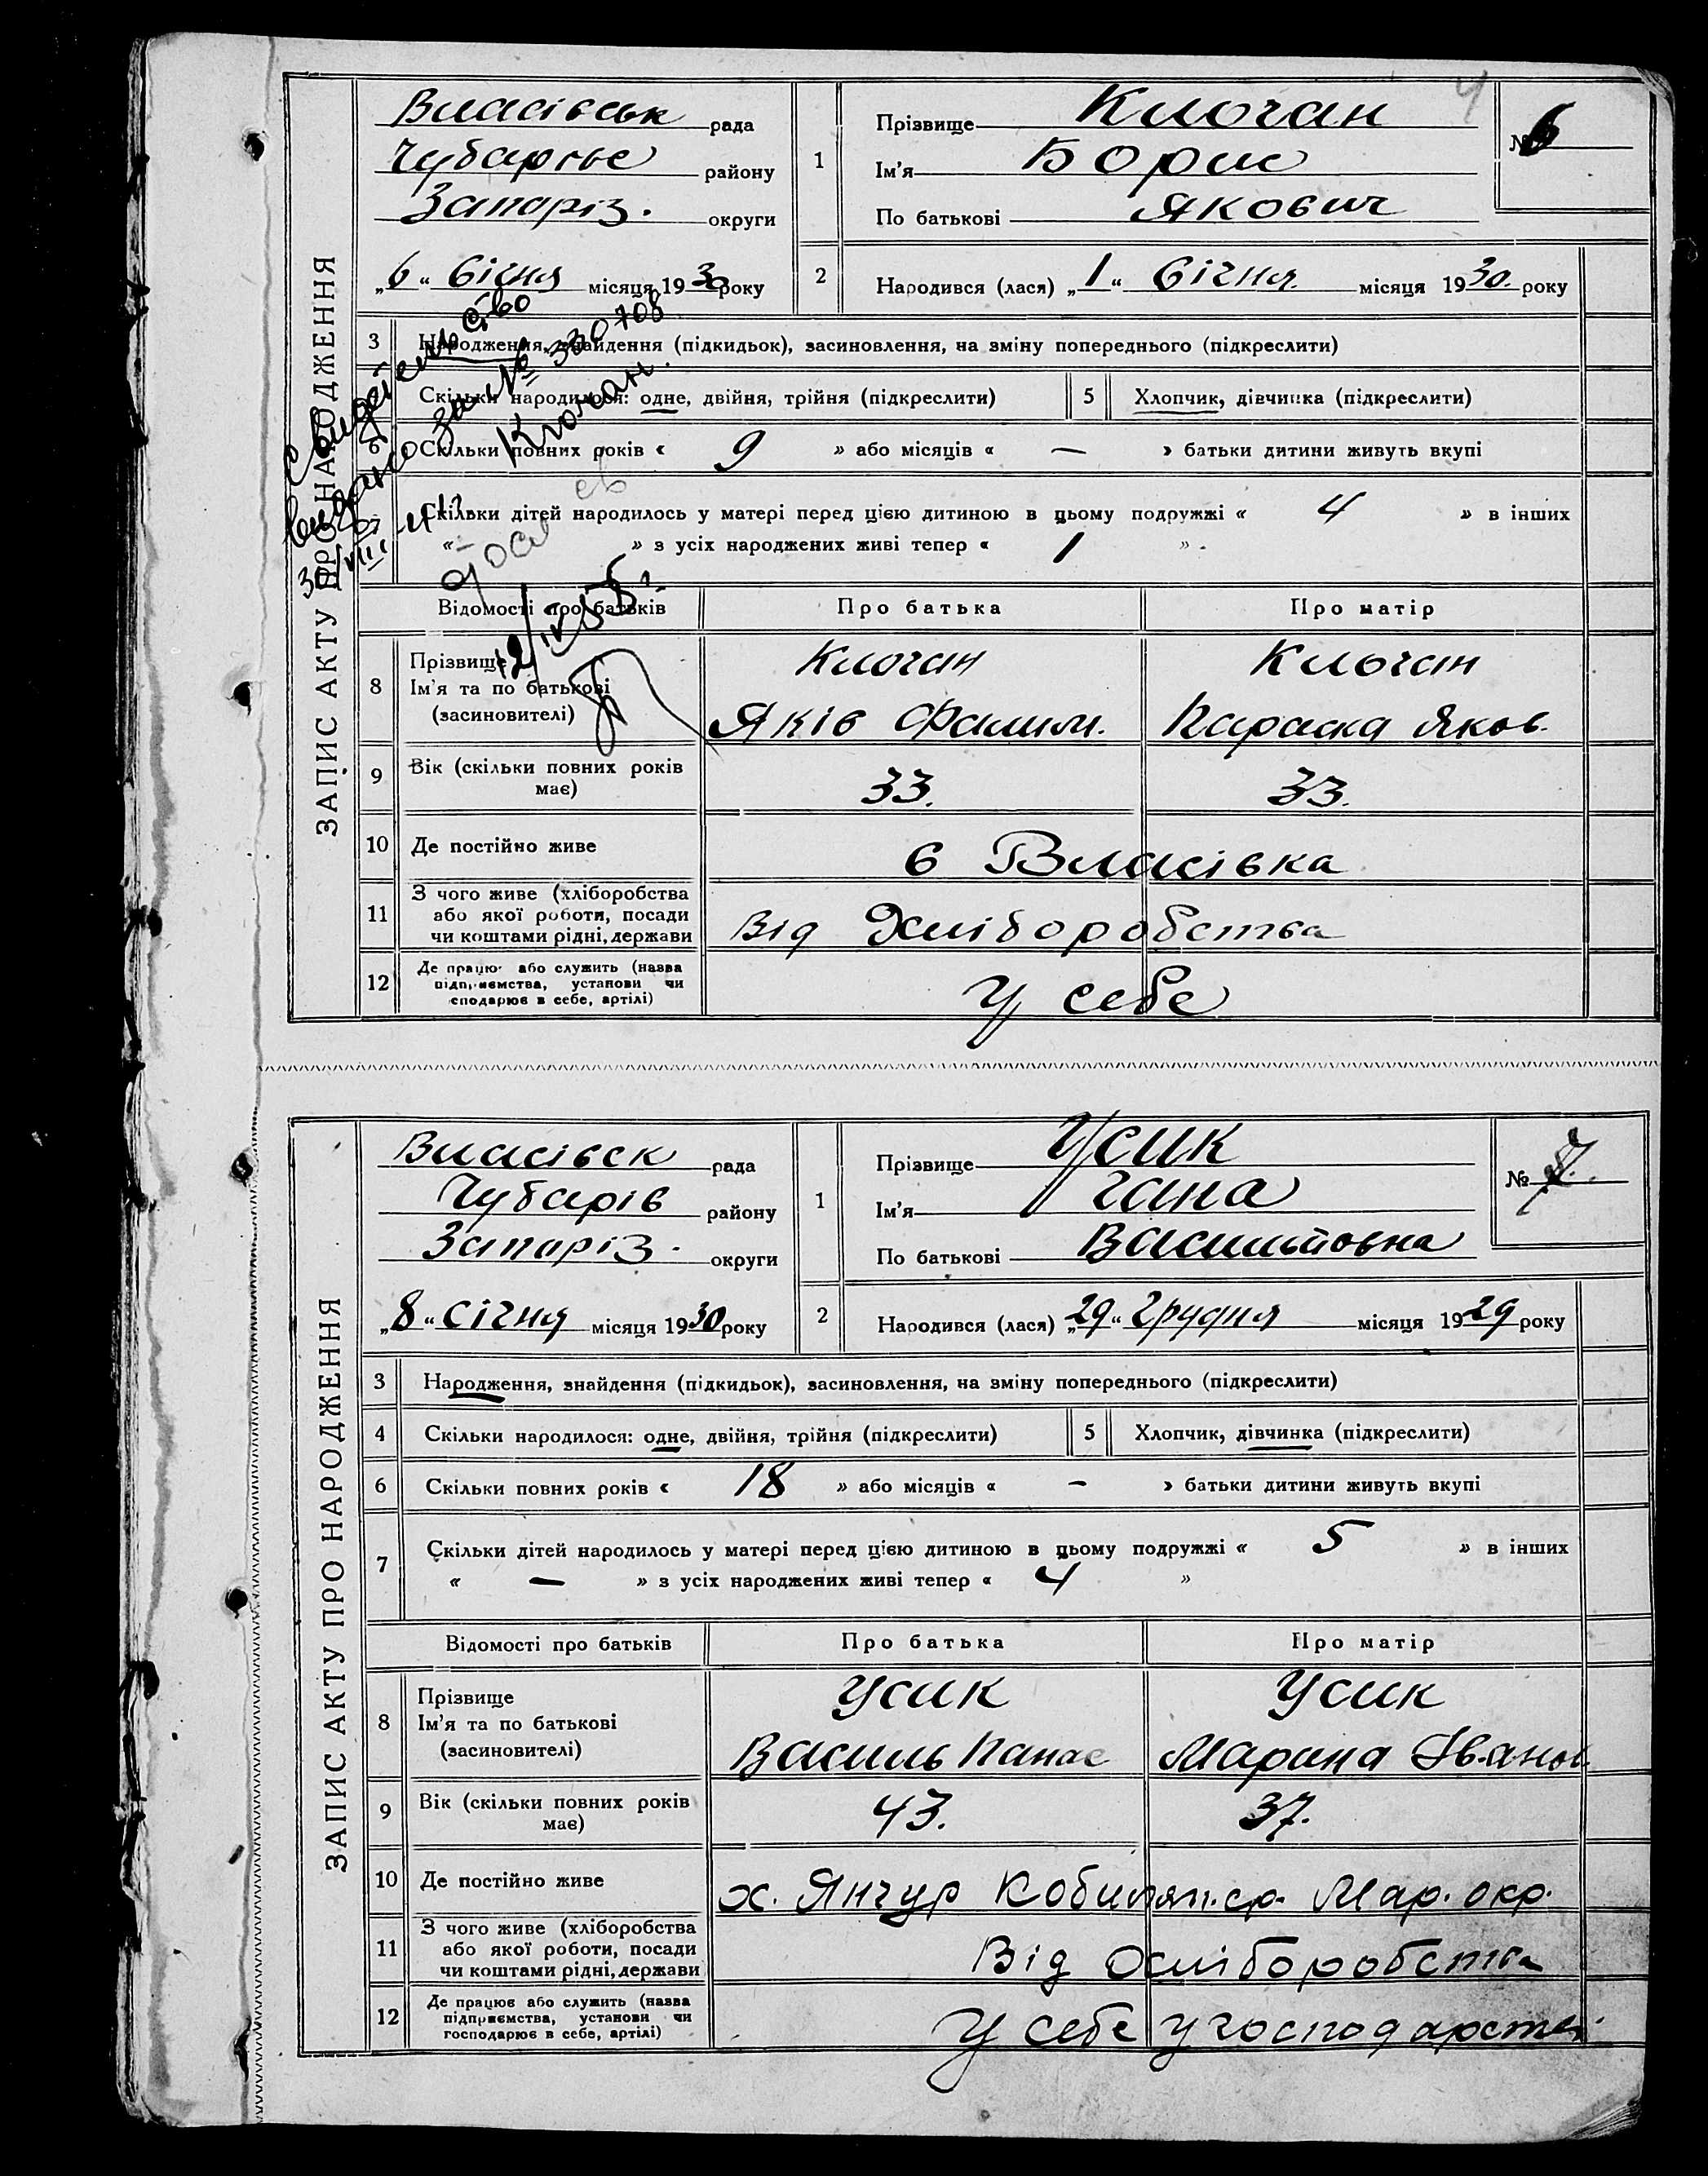 4
ЗАПИС АКТУ ПРО НАРОДЖЕННЯ
Власівськ рада
Чубарівс району
Запоріз. округи
„6“ Січня місяця 1930 року
1
Прізвище Клочан
Ім'я Борис
По батькові Якович
№ 6
2
Народився (лася) „1“ Січня. місяця 1930. року
3 Народження, знайдення (підкидьок), засиновлення, на зміну попереднього (підкреслити)
Скільки народилося: одне, двійня, трійня (підкреслити)
5 Хлопчик, дівчинка (підкреслити)
6 Скільки повних років « 9 » або місяців « — » батьки дитини живуть вкупі
Скільки дітей народилось у матері перед цією дитиною в цьому подружжі « 4 » в інших
« – » з усіх народжених живі тепер « 1 »
Свидетельство
выдано за № 330708
Клочан.
30/VIII
12/IV 55
Відомості про батьків Про батька Про матір
8 Прізвище
Ім'я та по батькові
(засиновителі)
Клочан
Яків Филим.
Клочан
Параска Яков.
9 Вік (скільки повних років
має)
33. 33.
10 Де постійно живе
с Власівка
11 З чого живе (хліборобства
або якої роботи, посади
чи коштами рідні, держави
Від Хліборобства
12 Де працює або служить (назва
підприємства, установи чи
сподарює в себе, артілі)
У себе
ЗАПИС АКТУ ПРО НАРОДЖЕННЯ
Власівск рада
Чубарів району
Запоріз. округи
„8“ січня місяця 1930 року
1
Прізвище Усик
Ім'я Гана
По батькові Васильовна
№ 7.
2
Народився (лася) „29“ Грудня місяця 1929 року
3 Народження, знайдення (підкидьок), засиновлення, на зміну попереднього (підкреслити)
4 Скільки народилося: одне, двійня, трійня (підкреслити)
5 Хлопчик, дівчинка (підкреслити)
6 Скільки повних років « 18 » або місяців « – » батьки дитини живуть вкупі
7 Скільки дітей народилось у матері перед цією дитиною в цьому подружжі « 5 » в інших
« – » з усіх народжених живі тепер « 4 »
Відомості про батьків Про батька Про матір
8 Прізвище
Ім'я та по батькові
(засиновителі)
Усик
Василь Панас
Усик
Марина Іванов
9 Вік (скільки повних років
має)
43. 37.
10 Де постійно живе
х. Янчур Мар. окр.
11 З чого живе (хліборобства
або якої роботи, посади
чи коштами рідні, держави
Від Хліборобства
12 Де працює або служить (назва
підприємства, установи чи
господарює в себе, артілі)
У себе у господарстві